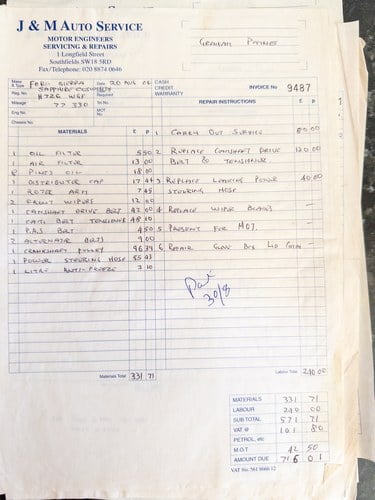 J & M AUTO SERVICE
MOTOR ENGINEERS
SERVICING & REPAIRS
1 Longfield Street
Southfields SW18 5RD
Fax/Telephone: 020 8874 0646
GRAHAM
Make & Type FORD SIERRA
Date 20 AUG 02
CASH
CREDIT
WARRANTY
INVOICE No 9487
SAPPHIRE COSWORTH
Reg. No.
Required
Mileage 77 330
Tel No.
Eng No.
MOT
REPAIR INSTRUCTIONS
Chassis No.
MATERIALS £ P £ P
1 CARRY OUT SERVICE 80.00
1 OIL FILTER 5 50 2 REPLACE CAMSHAFT DRIVE 120.00
1 AIR FILTER 13 00 BELT & TENSIONER
8 PINTS OIL 18 00
1 DISTRIBUTOR CAP 17 44 3 REPLACE LEAKING POWER 40.00
1 ROTOR ARM 7 45 STEERING HOSE
2 FRONT WIPERS 12 00
1 CAMSHAFT DRIVE BELT 4 REPLACE WIPER BLADES
1 CAM BELT TENSIONER 48 10
1 P.A.S. BELT 4 50 5 PRESENT FOR MOT.
2 ALTERNATOR BELTS 9 00
1 CRANKSHAFT PULLEY 96 34 6 REPAIR GLOVE BOX LID
1 POWER STEERING HOSE 55 93
1 LITRE ANTI-FREEZE 3 10
Paid
30/8
Materials Total 331 71
Labour Total 240.00
MATERIALS 331 71
LABOUR 240 00
SUB TOTAL 571 71
VAT @ 101 80
PETROL, etc
M.O.T 42 50
AMOUNT DUE 716 01
VAT No. 561 8666 12